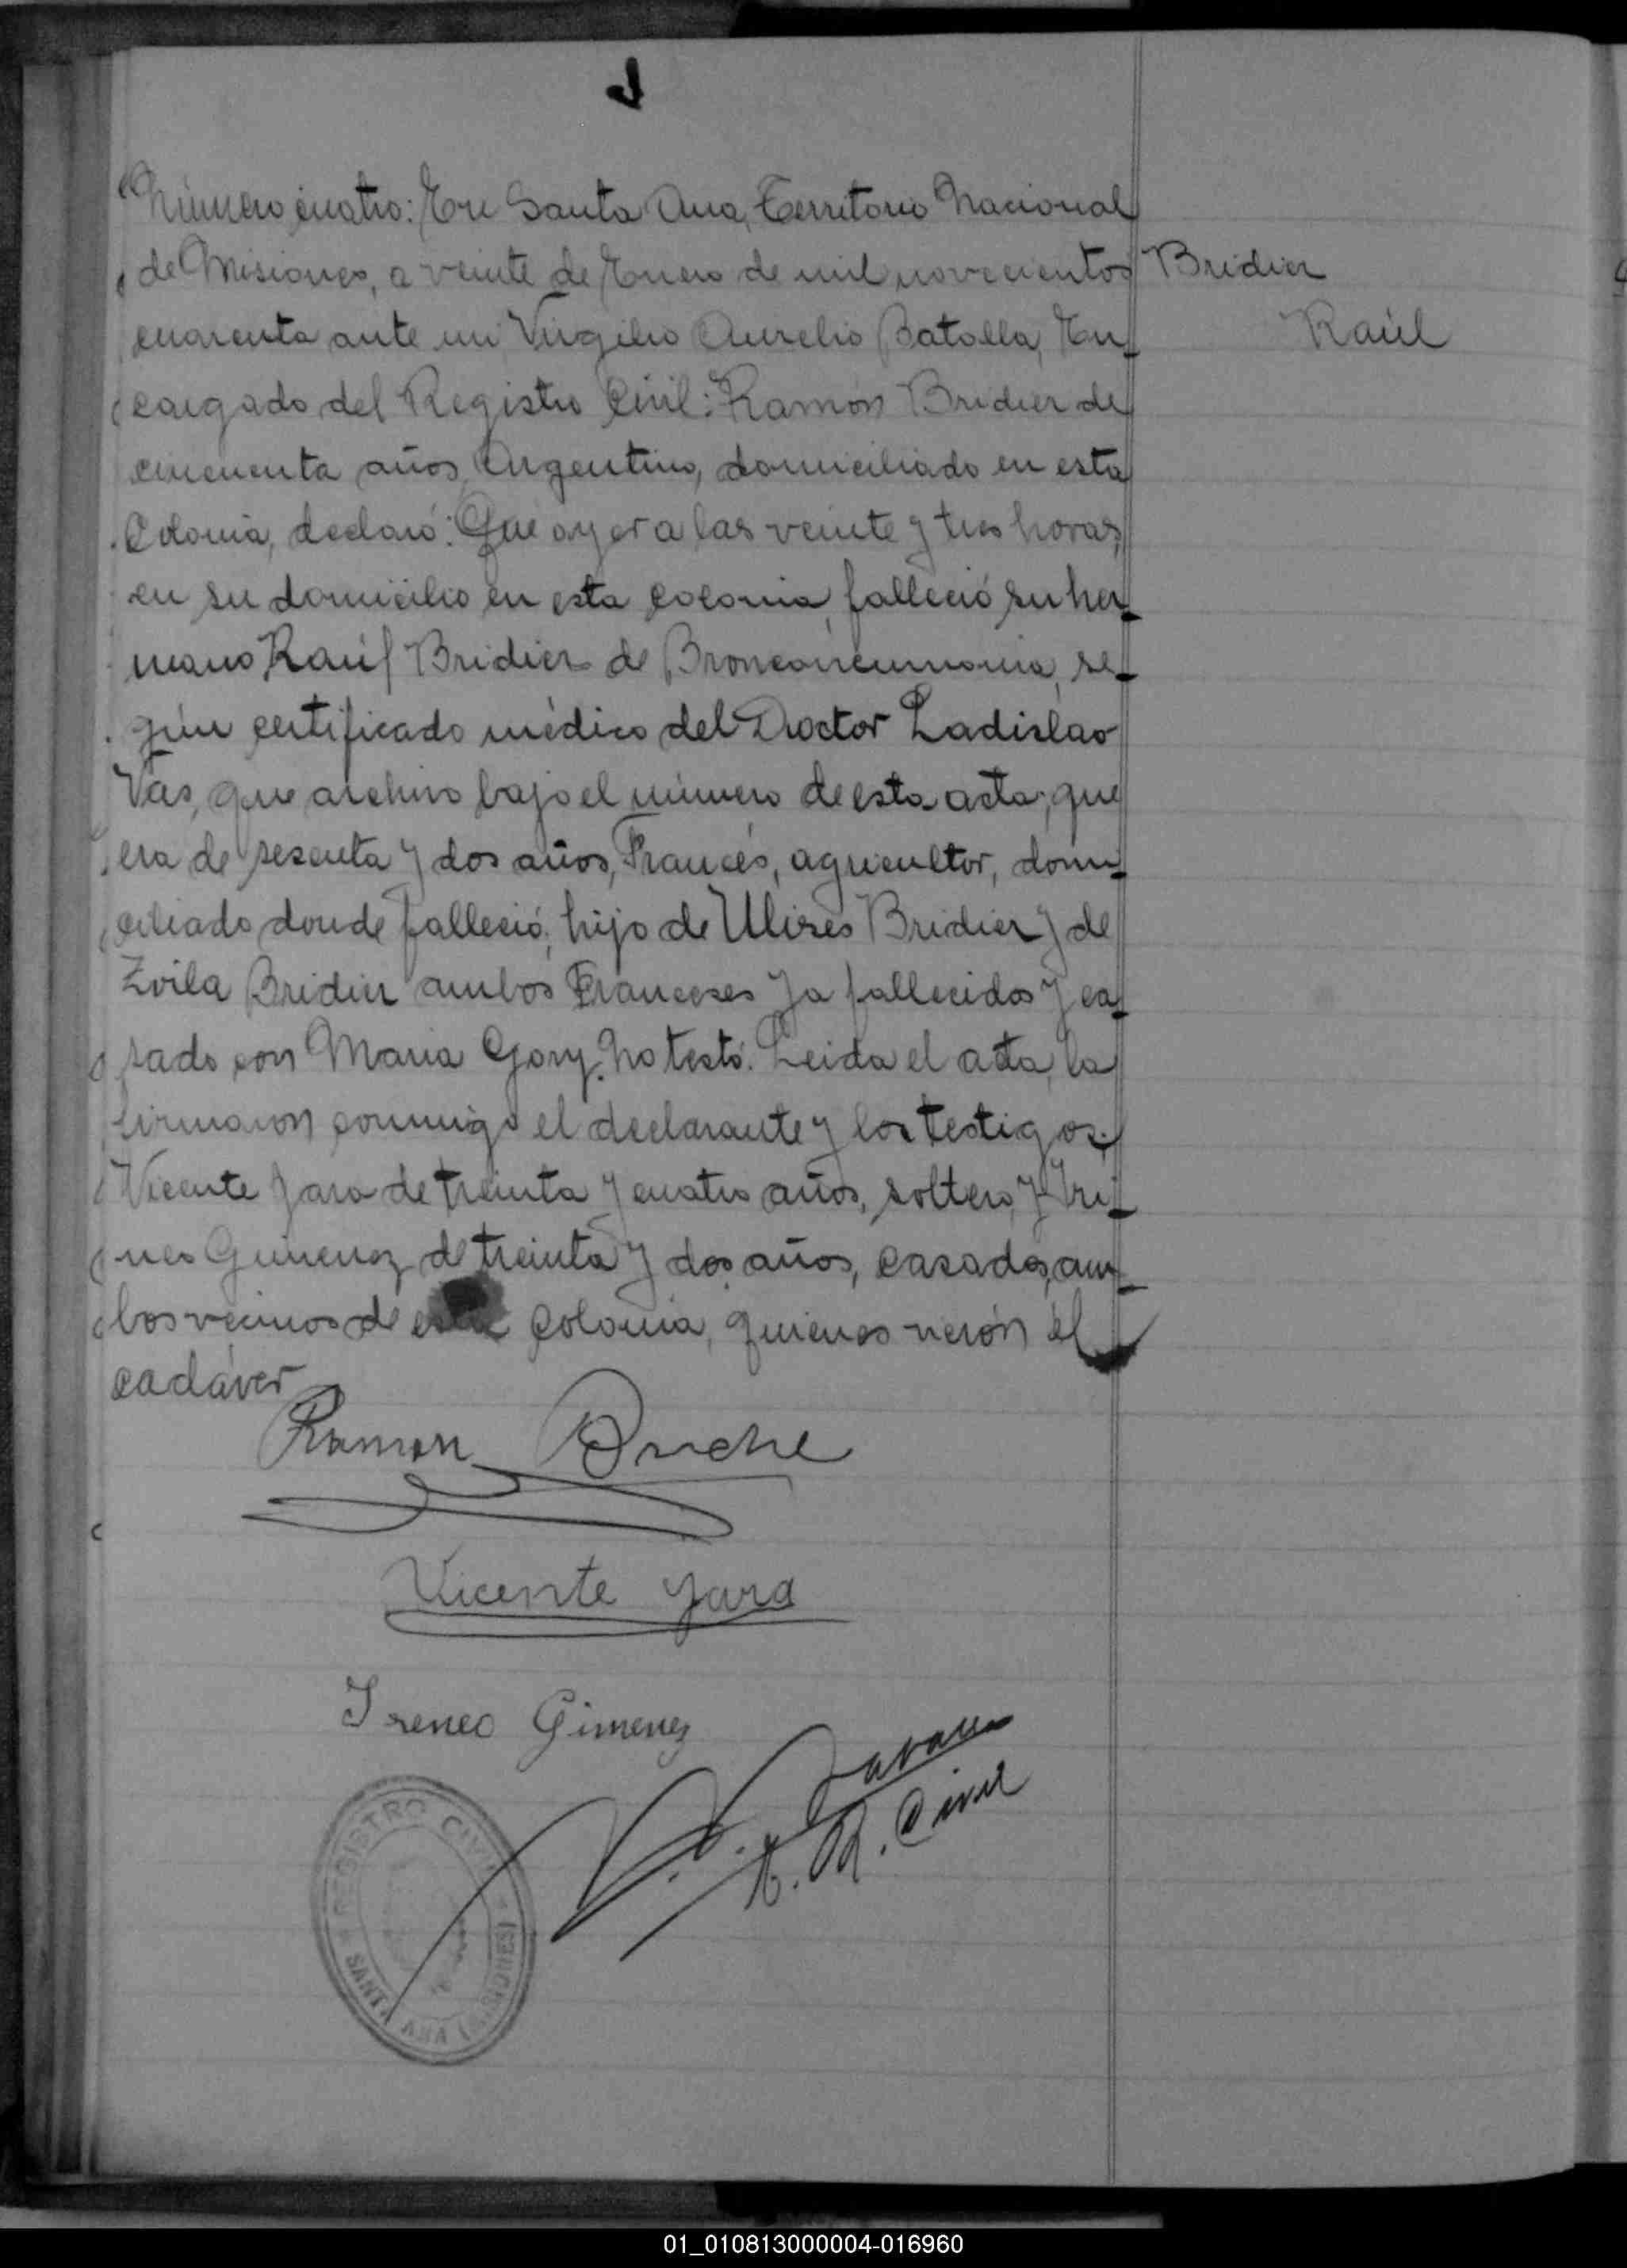 Número cuatro: En Santa Ana, Territorio Nacional
de Misiones, a veinte de Enero de mil novecientos
cuarenta ante mi Virgilio Aurelio Batalla, En-
cargado del Registro Civil: Ramón Bridier de
cincuenta años, Argentino, domiciliado en esta
Colonia, declaró: Que ayer a las veinte y tres horas,
en su domicilio en esta colonia, falleció su her-
mano Raúl Bridier de Bronconeumonia, se-
gún certificado médico del Doctor Ladislao
Vas, que archivo bajo el número de esta acta; que
era de sesenta y dos años, Francés, agricultor, domi-
ciliado donde falleció, hijo de Ulises Bridier y de
Zoila Bridier ambos Franceses ya fallecidos y ca-
sado con Maria Gory. No testó. Leida el acta, la
firmaron conmigo el declarante y los testigos:
Vicente Jara de treinta y cuatro años, soltero, y Iri-
neo Gimenez, de treinta y dos años, casado, am-
bos vecinos de esta Colonia, quienes vieron el
cadáver
Bridier
Raúl
Ramon
Vicente Jara
Ireneo Gimenez
R. Civil
REGISTRO CIVIL
SANTA ANA (MISIONES)
01_010813000004-016960